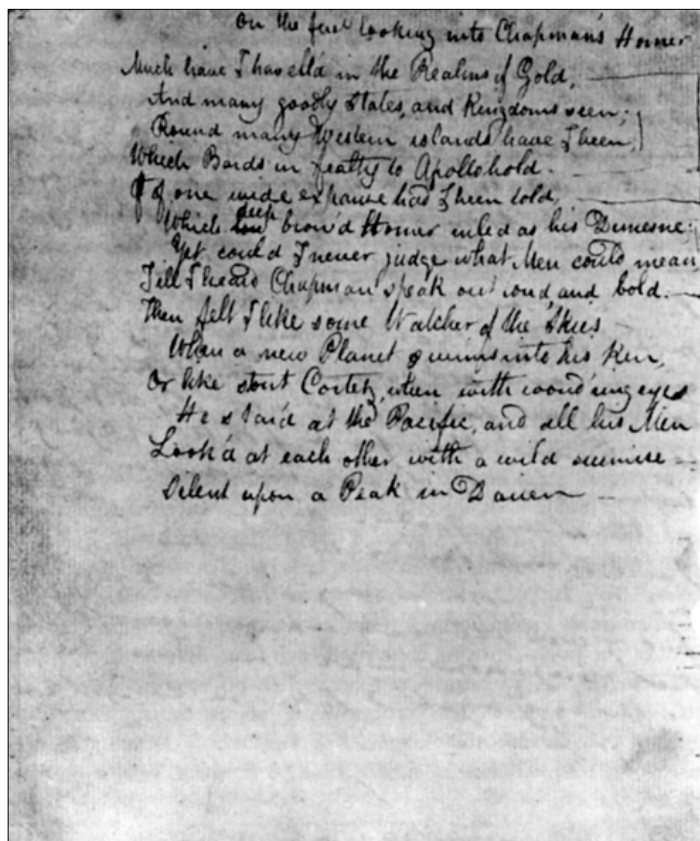 On the first looking into Chapman's Homer
Much have I travell'd in the Realms of Gold,
And many goodly States, and Kingdoms seen;
Round many Western islands have I been,
Which Bards in fealty to Apollo hold.
Of one wide expanse had I been told,
Which low deep brow'd Homer ruled as his Demesne;
Yet could I never judge what Men could mean
Till I heard Chapman speak out loud, and bold.
Then felt I like some Watcher of the Skies
When a new Planet swims into his Ken,
Or like stout Cortez, when with wond'ring eyes
He star'd at the Pacific, and all his Men
Look'd at each other with a wild surmise
Silent upon a Peak in Darien